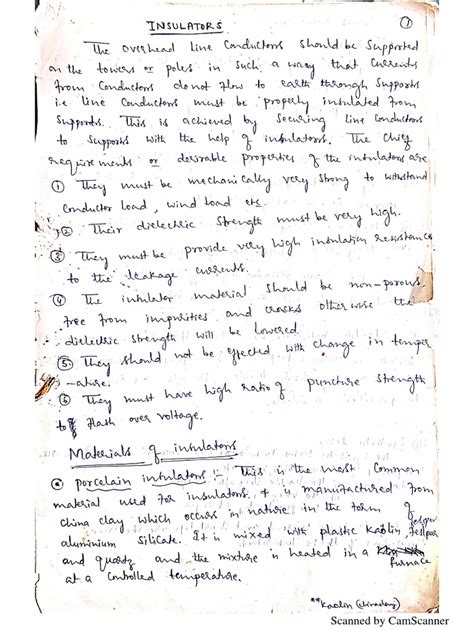 INSULATORS
1
The overhead line conductors should be supported
on the towers or poles in such a way that currents
from conductors do not flow to earth through supports
i.e line conductors must be properly insulated from
supports. This is achieved by securing line conductors
to supports with the help of insulators. The chief
requirements or desirable properties of the insulators are
① They must be mechanically very strong to withstand
conductor load, wind load etc.
② Their dielectric strength must be very high.
③ They must be provide very high insulation resistance
to the leakage currents.
④ The insulator material should be non-porous
free from impurities and cracks otherwise the
dielectric strength will be lowered
⑤ They should not be effected with change in temper
-ature.
⑥ They must have high ratio of puncture strength
to flash over voltage.
Materials of insulators
porcelain insulators :- This is the most common
material used for insulators. & is manufactured from
china clay which occurs in nature in the form of
aluminium silicate. It is mixed with plastic kaolin,
and quartz and the mixture is heated in a
furnace
at a controlled temperature.
**kaolin
Scanned by CamScanner